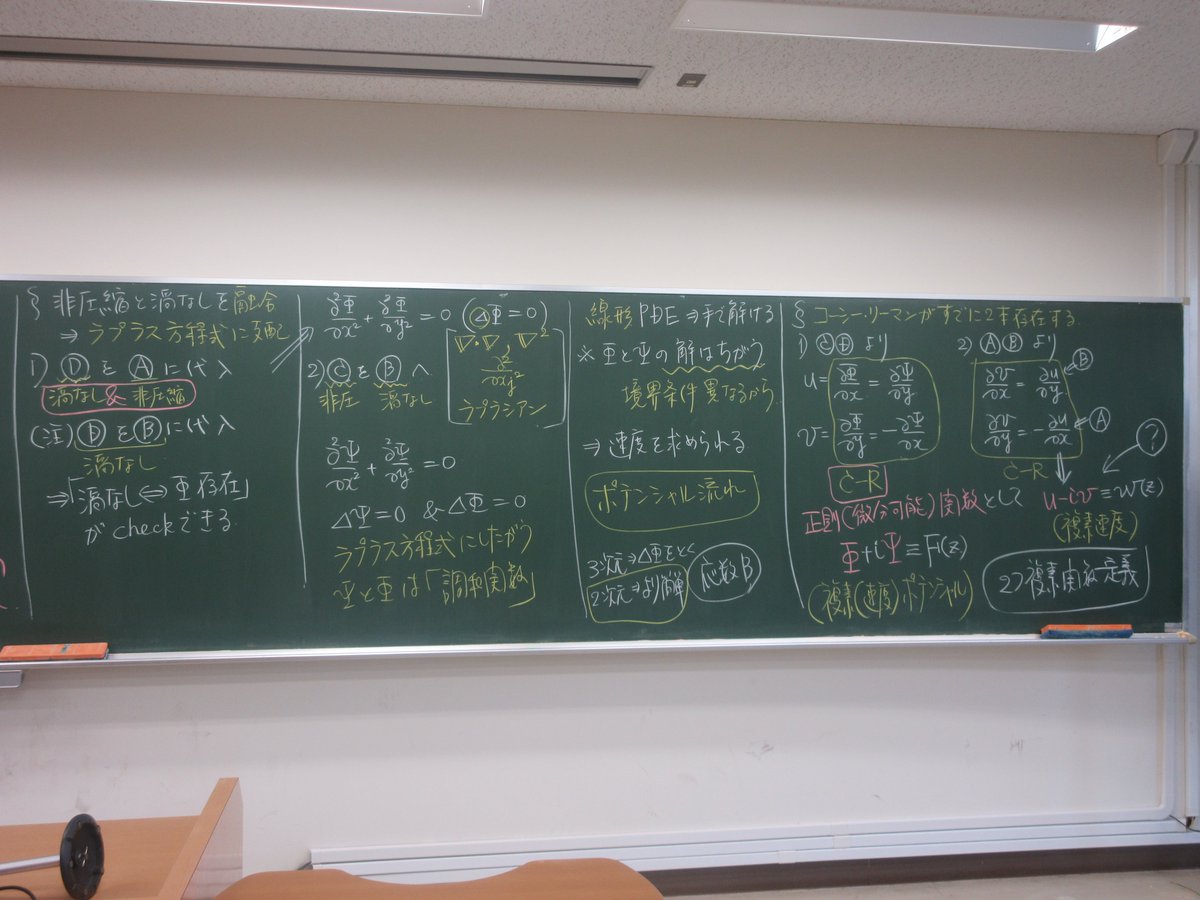 § 非圧縮と渦なしを融合
⇒ ラプラス方程式に支配
1) Ⓓ を Ⓐ に代入
渦なし & 非圧縮
(注) Ⓓ を Ⓑ に代入
渦なし
⇒「渦なし⇔Φ存在」
がcheckできる
∂²Φ/∂x² + ∂²Φ/∂y² = 0 (ΔΦ = 0)
∇・∇, ∇²
∂²/∂xj²
ラプラシアン
2) Ⓒ を Ⓑ へ
非圧 渦なし
∂²Ψ/∂x² + ∂²Ψ/∂y² = 0
ΔΨ = 0 & ΔΦ = 0
ラプラス方程式にしたがう
ΨとΦは「調和関数」
線形 PDE ⇒ 手で解ける
※ ΦとΨの解はちがう
境界条件異なるから
⇒ 速度を求められる
ポテンシャル流れ
3次元⇒ΔΦをとく
2次元⇒より簡単
応数B
§ コーシー・リーマンがすでに2本存在する
1) ⒸⒹ より
u = ∂Φ/∂x = ∂Ψ/∂y
v = ∂Φ/∂y = -∂Ψ/∂x
C-R
正則(微分可能)関数として
Φ + iΨ ≡ F(z)
(複素(速度)ポテンシャル)
2) ⒶⒷ より
∂v/∂x = ∂u/∂y Ⓑ
∂v/∂y = -∂u/∂x Ⓐ
C-R
?
u - iv ≡ w(z)
(複素速度)
2つ複素関数定義